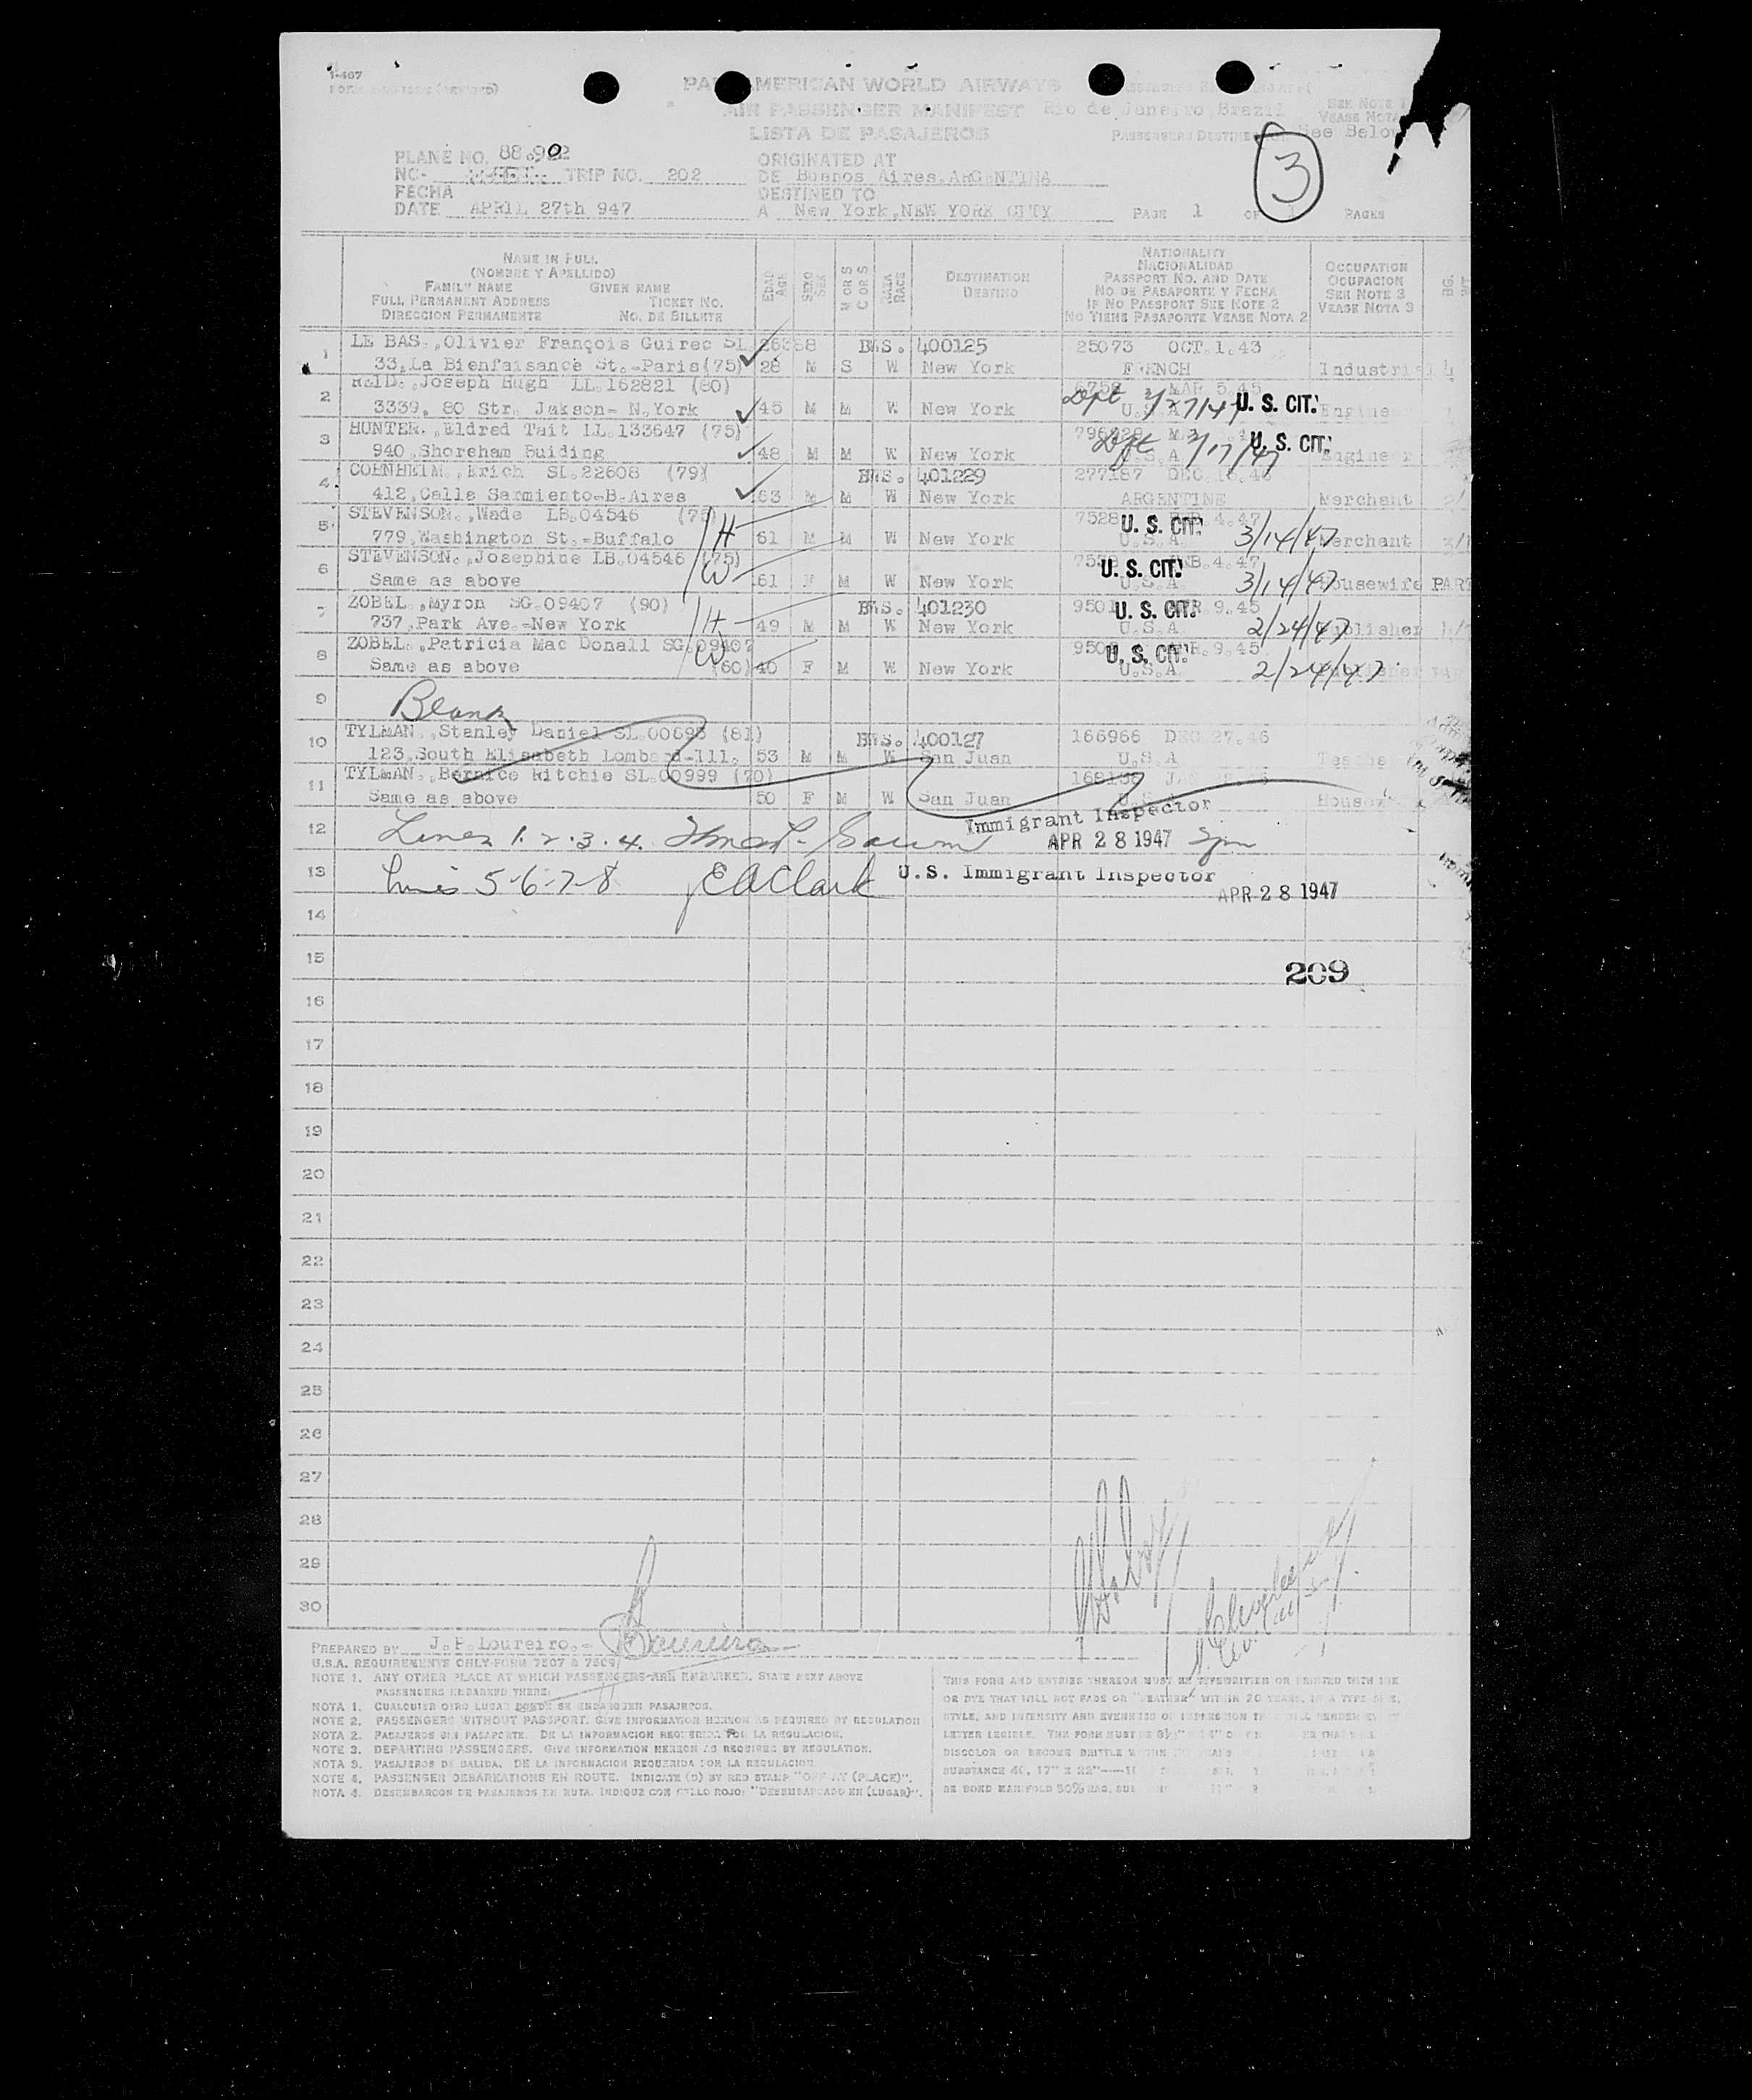 I-407
PAN AMERICAN WORLD AIRWAYS
AIR PASSENGER MANIFEST Rio de Janeiro, Brazil
LISTA DE PASAJEROS
SEE NOTE
VEASE NOTA
See Below
3
PLANE NO. 88.902
NC- TRIP NO. 202
FECHA
DATE APRIL 27th 947
ORIGINATED AT
DE Buenos Aires, ARGENTINA
DESTINED TO
A New York, NEW YORK CITY
PAGE 1 OF 1 PAGES
NAME IN FULL
(NOMBRE Y APELLIDO)
FAMILY NAME GIVEN NAME
FULL PERMANENT ADDRESS TICKET NO.
DIRECCION PERMANENTE NO. DE BILLETE
EDAD AGE
SEXO SEX
M OR S
C OR S
RAZA RACE
DESTINATION
DESTINO
NATIONALITY
NACIONALIDAD
PASSPORT NO. AND DATE
NO DE PASAPORTE Y FECHA
IF NO PASSPORT SEE NOTE 2
NO TIENE PASAPORTE VEASE NOTA 2
OCCUPATION
OCUPACION
SEE NOTE 3
VEASE NOTA 3
1 LE BAS.,Olivier François Guirec SL 26388 BWS. 400125 25073 OCT.1.43
33,La Bienfaisance St.-Paris(75) 28 M S W New York FRENCH Industrial
2 REID.,Joseph Hugh LL.162821 (80) MAR.5.45
3339, 80 Str. Jakson- N.York 45 M M W New York Dept 2/27/47 U.S.A U. S. CIT. Engine
3 HUNTER.,Eldred Tait LL.133647 (75)
940,Shoreham Buiding 48 M M W New York U.S.A 2/17/47 U. S. CIT. Engine
4 COENHEIM.,Erich SL.22608 (79) BWS. 401229 277187 DEC.
412,Calle Sarmiento-B-Aires 63 M M W New York ARGENTINE Merchant
5 STEVENSON.,Wade LB.04546 (75) H 7528 U. S. CIT. 4.47
779,Washington St.-Buffalo 61 M M W New York U.S.A. 3/14/47 Merchant
6 STEVENSON.,Josephine LB.04546 (75) W U. S. CIT. FEB.4.47
Same as above 61 F M W New York U.S.A. 3/14/47 Housewife
7 ZOBEL.,Myron SG.09407 (90) H BWS. 401230 9501 U. S. CIT. 9.45
737,Park Ave.-New York 49 M M W New York U.S.A 2/24/47 Publisher
8 ZOBEL.,Patricia Mac Donall SG.09407 W 950 U. S. CIT. 9.45
Same as above (60) 40 F M W New York U.S.A. 2/24/47
9 Blank
10 TYLMAN.,Stanley Daniel SL.00698 (81) BWS. 400127 166966 DEC 27.46
123,South Elisabeth Lombard-Ill. 53 M M W San Juan U.S.A
11 TYLMAN.,Bernice Ritchie SL.00999 (70)
Same as above 50 F M W San Juan U.S.A
12 Lines 1.2.3.4. Immigrant Inspector
APR 28 1947 2pm
13 Lines 5-6-7-8 E A Clark U.S. Immigrant Inspector
APR 28 1947
14
15
209
16
17
18
19
20
21
22
23
24
25
26
27
28
29
30
PREPARED BY J.P.Loureiro.-
U.S.A. REQUIREMENTS ONLY-FORM 7507 & 7509
NOTE 1. ANY OTHER PLACE AT WHICH PASSENGERS ARE EMBARKED. STATE NEXT ABOVE
PASSENGERS EMBARKED THERE.
NOTA 1. CUALQUIER OTRO LUGAR DONDE SE EMBARQUEN PASAJEROS.
NOTE 2. PASSENGERS WITHOUT PASSPORT. GIVE INFORMATION HEREON AS REQUIRED BY REGULATION
NOTA 2. PASAJEROS SIN PASAPORTE. DE LA INFORMACION REQUERIDA POR LA REGULACION.
NOTE 3. DEPARTING PASSENGERS. GIVE INFORMATION HEREON AS REQUIRED BY REGULATION.
NOTA 3. PASAJEROS DE SALIDA. DE LA INFORMACION REQUERIDA POR LA REGULACION
NOTE 4. PASSENGER DEBARKATIONS EN ROUTE. INDICATE (D) BY RED STAMP "OFF AT (PLACE)".
NOTA 4. DESEMBARCOS DE PASAJEROS EN RUTA. INDIQUE CON SELLO ROJO: "DESEMBARCADO EN (LUGAR)".
THIS FORM AND ENTRIES THEREON MUST BE TYPEWRITTEN OR PRINTED WITH INK
OR DYE THAT WILL NOT FADE OR "FEATHER" WITHIN 20 YEARS, IN A TYPE SIZE,
STYLE, AND INTENSITY AND EVENNESS OF IMPRESSION
LETTER LEGIBLE. THE FORM MUST BE 8½"
DISCOLOR OR BECOME BRITTLE WITHIN
SUBSTANCE 40, 17" X 22"
OR BOND MANIFOLD 50% RAG, SUB